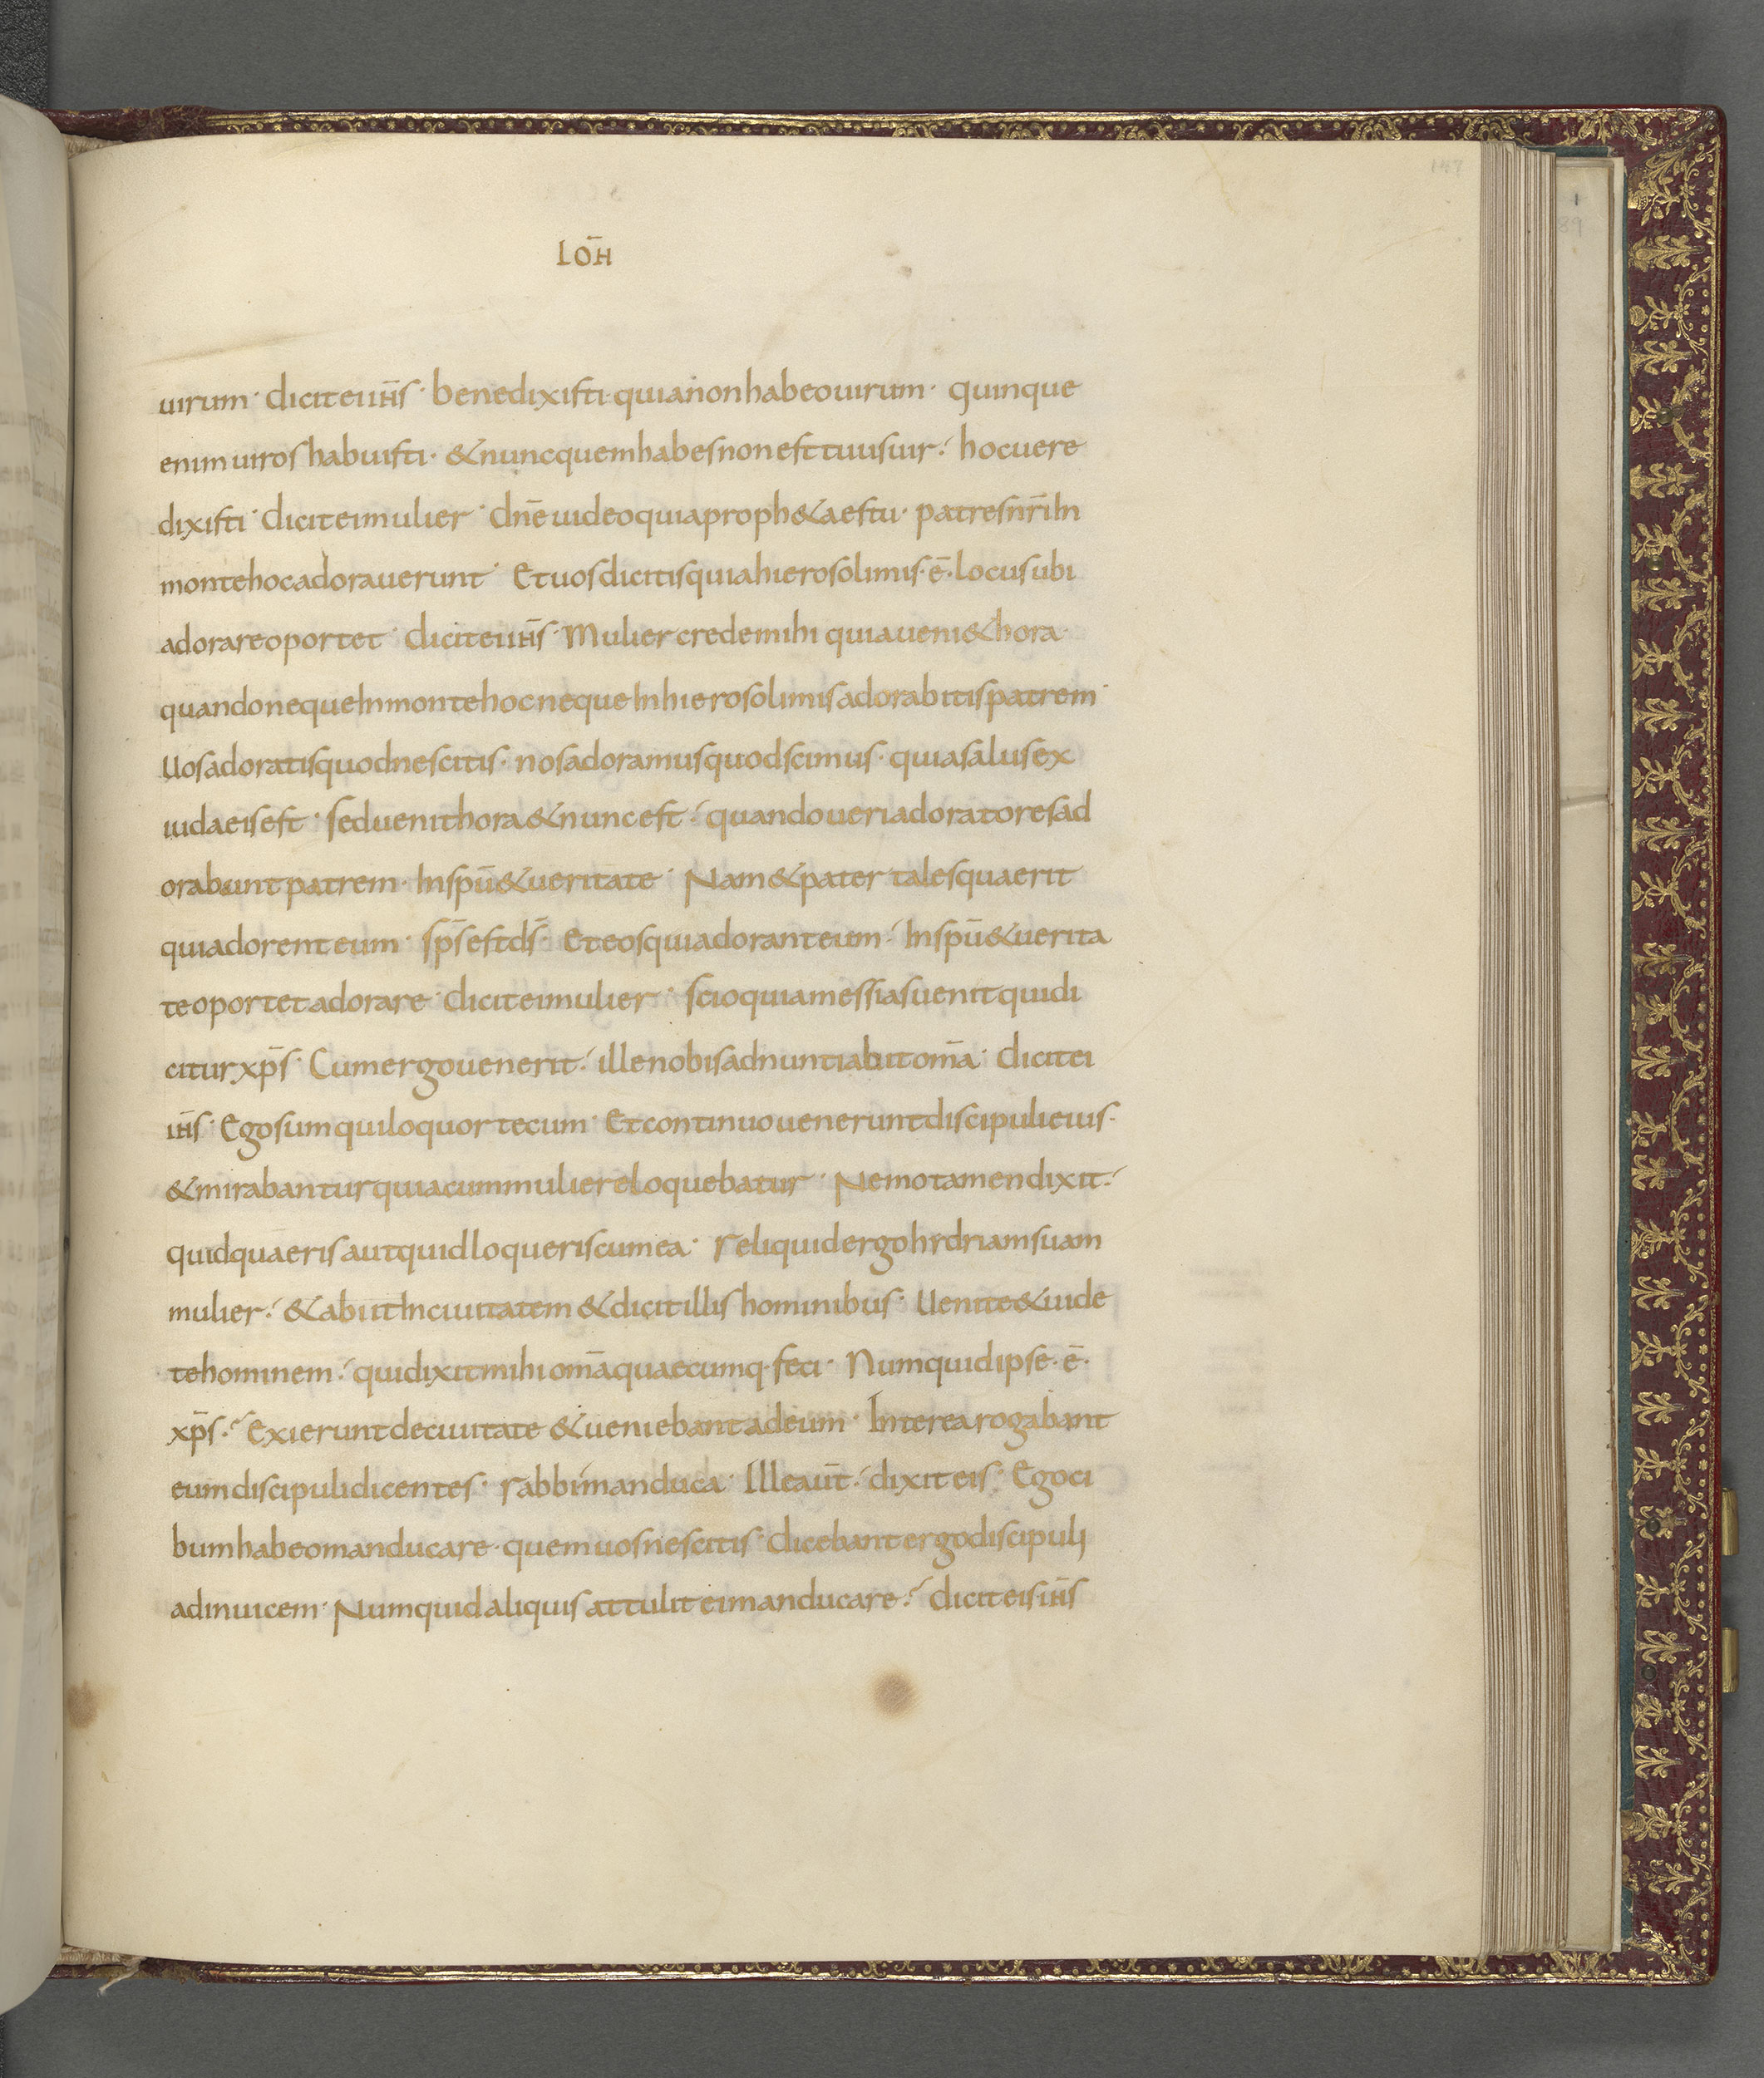 IOH̄
uirum· dicit ei ih̄s· bene dixisti· quia non habeo uirum· quinque
enim uiros habuisti· & nunc quem habes non est tuus uir·/ hoc uere
dixisti· dicit ei mulier· dn̄e uideo quia proph&a es tu· patres nr̄i In
monte hoc adorauerunt· Et uos dicitis quia hierosolimis·ē·locus ubi
adorare oportet· dicit ei ih̄s· Mulier crede mihi quia ueni& hora·
quando neque In monte hoc neque In hierosolimis adorabitis patrem·
Uos adoratis quod nescitis· nos adoramus quod scimus· quia salus ex
iudaeis est· sed uenit hora & nunc est·/ quando ueri adoratores ad
orabunt patrem· In spū & ueritate· Nam & pater tales quaerit
qui adorent eum· sp̄s est ds̄· Et eos qui adorant eum·/ In spū & uerita
te oportet adorare· dicit ei mulier· scio quia messias uenit qui di
citur xp̄s· Cum ergo uenerit·/ ille nobis adnuntiabit om̄a· dicit ei
ih̄s· Ego sum qui loquor tecum· Et continuo uenerunt discipuli eius·
& mirabantur quia cum muliere loquebatur· Nemo tamen dixit·/
quid quaeris aut quid loqueris cum ea· reliquid ergo hrdriam suam
mulier·/ & abiit In ciuitatem & dicit illis hominibus· Uenite & uide
te hominem·/ qui dixit mihi om̄a quaecumq· feci· Numquid ipse·ē·
xp̄s·/ Exierunt de ciuitate & ueniebant ad eum· Interea rogabant
eum discipuli dicentes· rabbi manduca· Ille aūt·/ dixit eis· Ego ci
bum habeo manducare· quem uos nescitis· dicebant ergo discipuli
adinuicem· Numquid aliquis attulit ei manducare·/ dicit eis ih̄s